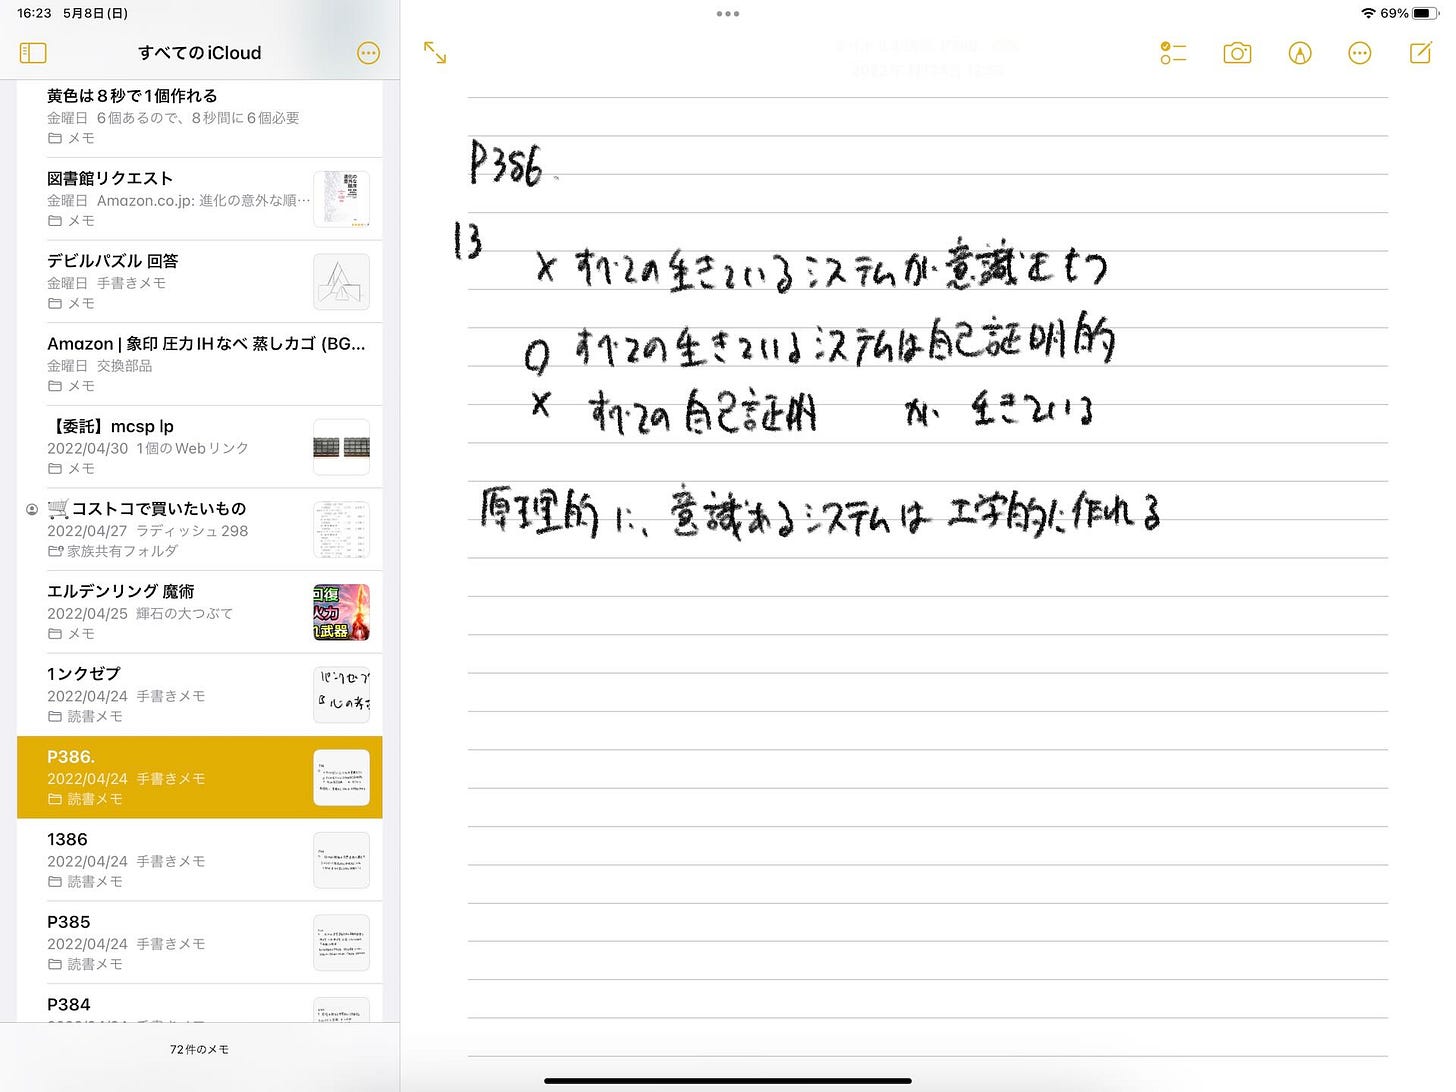 16:23 5月8日(日)
69%
すべてのiCloud
黄色は8秒で1個作れる
金曜日 6個あるので、8秒間に6個必要
メモ
図書館リクエスト
金曜日 Amazon.co.jp: 進化の意外な順…
メモ
デビルパズル 回答
金曜日 手書きメモ
メモ
Amazon | 象印 圧力IHなべ 蒸しカゴ (BG...
金曜日 交換部品
メモ
【委託】mcsp lp
2022/04/30 1個のWebリンク
メモ
🛒コストコで買いたいもの
2022/04/27 ラディッシュ298
家族共有フォルダ
エルデンリング 魔術
2022/04/25 輝石の大つぶて
メモ
1ンクゼプ
2022/04/24 手書きメモ
読書メモ
P386.
2022/04/24 手書きメモ
読書メモ
1386
2022/04/24 手書きメモ
読書メモ
P385
2022/04/24 手書きメモ
読書メモ
P384
72件のメモ
P386.
13
× すべての生きているシステムが意識をもつ
○ すべての生きているシステムは自己証明的
× すべての自己証明 が 生きている
原理的に、意識あるシステムは工学的に作れる